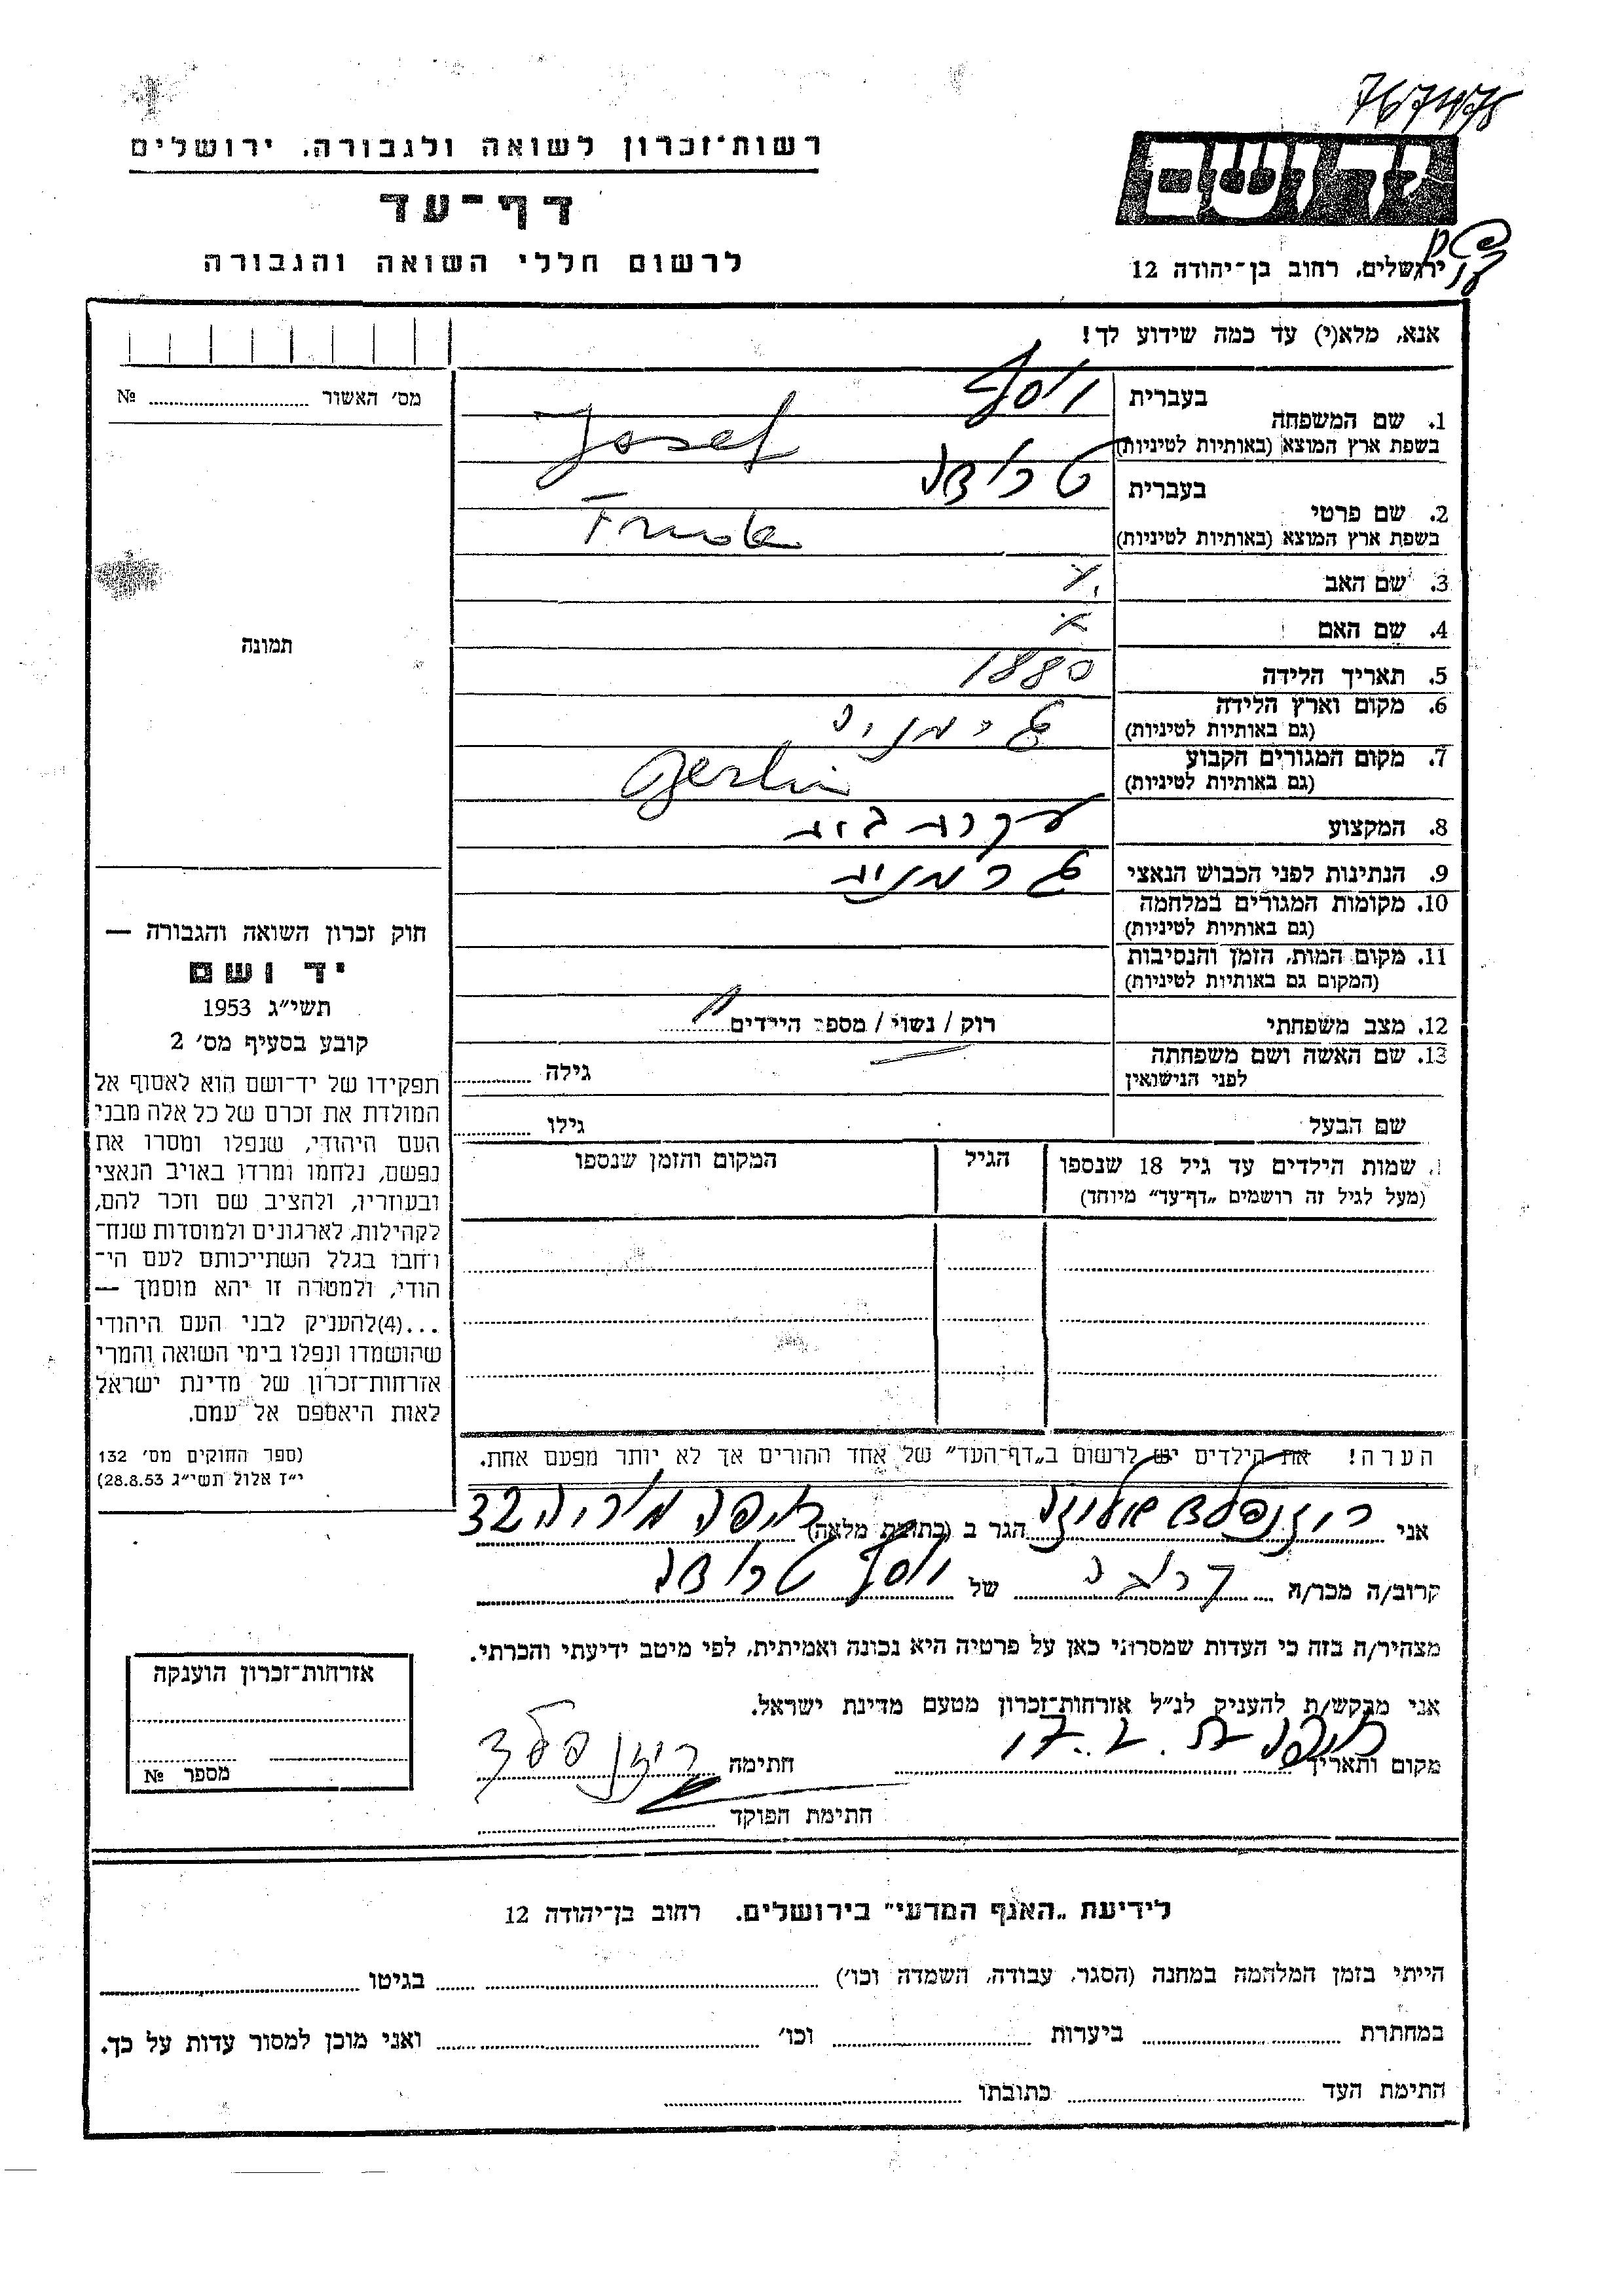 767478
רשות־זכרון לשואה ולגבורה. ירושלים
דף־עד
לרשום חללי השואה והגבורה
ידושם
ירושלים, רחוב בן־יהודה 12
אנא, מלא(י) עד כמה שידוע לך!
מס׳ האשור № 
1. שם המשפחה
בעברית יוסף
בשפת ארץ המוצא (באותיות לטיניות) Josef
2. שם פרטי
בעברית טרודה
בשפת ארץ המוצא (באותיות לטיניות)
3. שם האב
4. שם האם
5. תאריך הלידה 1880
6. מקום וארץ הלידה
(גם באותיות לטיניות)
7. מקום המגורים הקבוע
(גם באותיות לטיניות) Berlin
8. המקצוע עקרת בית
9. הנתינות לפני הכבוש הנאצי גרמנית
10. מקומות המגורים במלחמה
(גם באותיות לטיניות)
11. מקום המות, הזמן והנסיבות
(המקום גם באותיות לטיניות)
12. מצב משפחתי רוק / נשוי / מספר הילדים
13. שם האשה ושם משפחתה
לפני הנישואין גילה
שם הבעל גילו
שמות הילדים עד גיל 18 שנספו
(מעל לגיל זה רושמים „דף־עד״ מיוחד)
הגיל
המקום והזמן שנספו
תמונה
חוק זכרון השואה והגבורה —
יד ושם
תשי״ג 1953
קובע בסעיף מס׳ 2
תפקידו של יד־ושם הוא לאסוף אל
המולדת את זכרם של כל אלה מבני
העם היהודי, שנפלו ומסרו את
נפשם, נלחמו ומרדו באויב הנאצי
ובעוזריו, ולהציב שם וזכר להם,
לקהילות, לארגונים ולמוסדות שנח־
רחבו בגלל השתייכותם לעם הי־
הודי, ולמטרה זו יהא מוסמך —
...(4)להעניק לבני העם היהודי
שהושמדו ונפלו בימי השואה והמרי
אזרחות־זכרון של מדינת ישראל
לאות היאספם אל עמם.
(ספר החוקים מס׳ 132
י״ז אלול תשי״ג 28.8.53)
הערה! את הילדים יש לרשום ב„דף־העד״ של אחד ההורים אך לא יותר מפעם אחת.
אני רוזנפלד הגר ב (כתובת מלאה) חיפה 32
קרוב/ה מכר/ה של יוסף טרודה
מצהיר/ה בזה כי העדות שמסרתי כאן על פרטיה היא נכונה ואמיתית, לפי מיטב ידיעתי והכרתי.
אני מבקש/ת להעניק לנ״ל אזרחות־זכרון מטעם מדינת ישראל.
מקום ותאריך חיפה חתימה רוזנפלד
חתימת הפוקד
אזרחות־זכרון הוענקה
מספר №
לידיעת „האגף המדעי״ בירושלים. רחוב בן־יהודה 12
הייתי בזמן המלחמה במחנה (הסגר, עבודה, השמדה וכו׳) בגיטו
במחתרת ביערות וכו׳ ואני מוכן למסור עדות על כך.
חתימת העד כתובתו